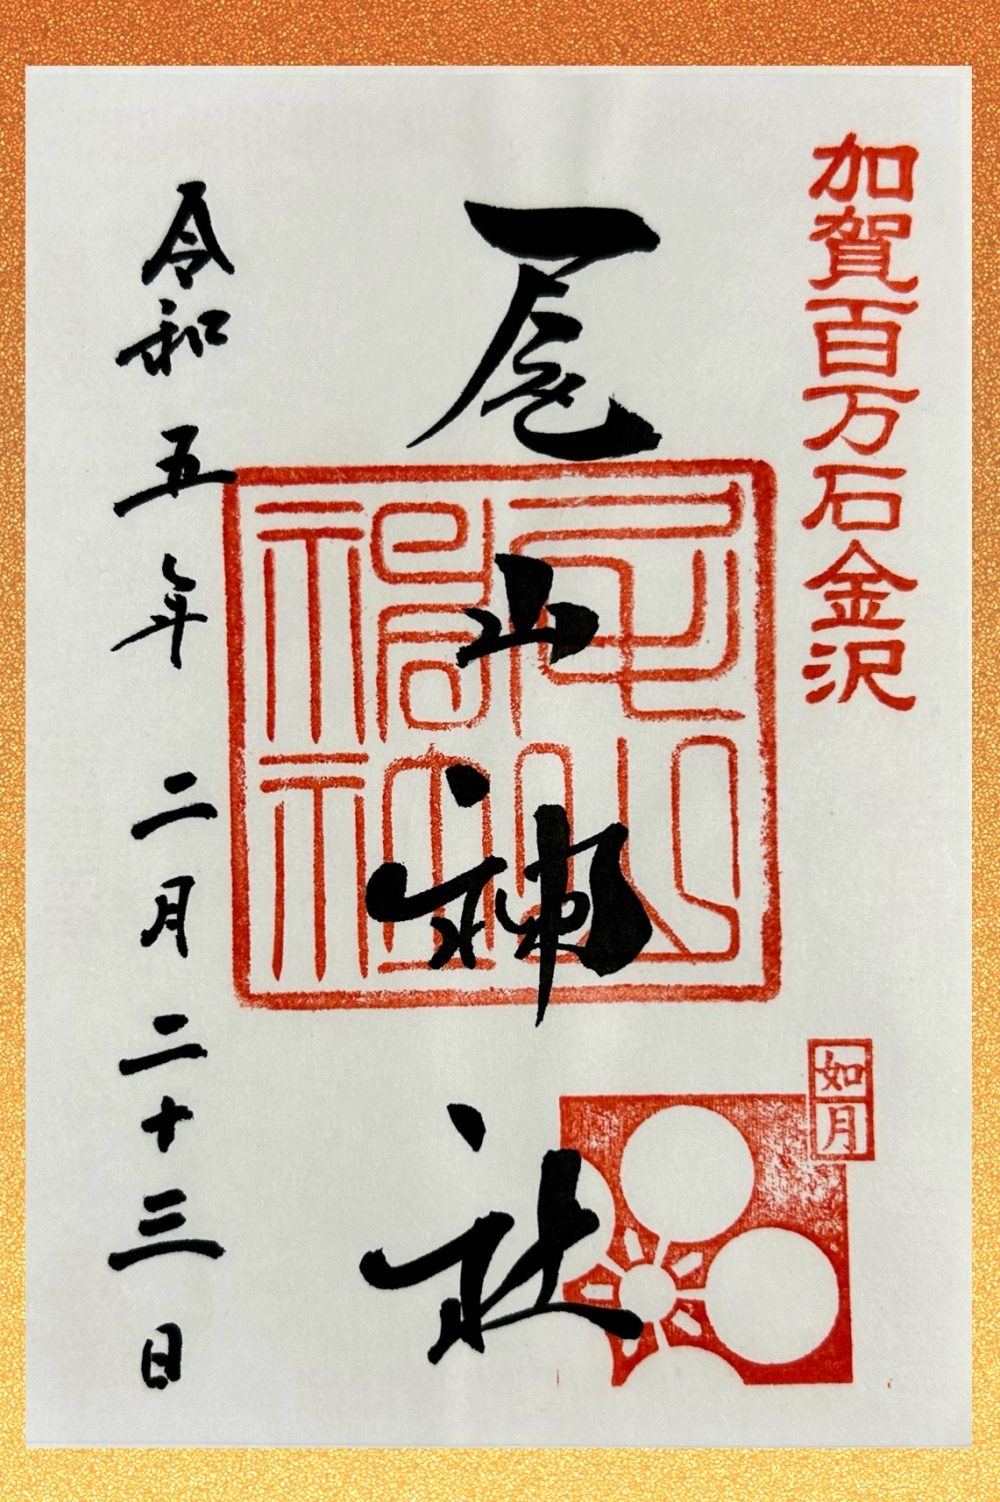 加賀百万石金沢
如月
尾山神社
尾山神社
令和五年二月二十三日